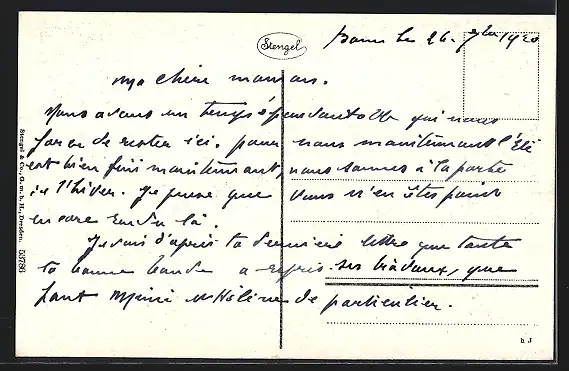 Stengel
Bonn le 26. 7bre 1920
Ma chère maman.
Nous avons un temps épouvantable qui nous
force de rester ici. pour nous maintenant l'Été
est bien fini maintenant, nous sommes à la porte
de l'hiver. Je pense que vous n'en êtes point
encore rendu là.
Je vois d'après ta dernière lettre que toute
ta bonne bande a repris ses travaux, que
font Mimi et Hélène de particulier.
Stengel & Co., G. m. b. H., Dresden. 53786
b. J